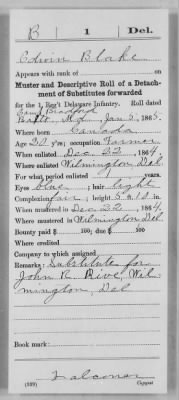 B 1 Del.
Edwin Blake
Appears with rank of on
Muster and Descriptive Roll of a Detach-
ment of Substitutes forwarded
for the 1 Reg't Delaware Infantry. Roll dated
Camp Bradford
Balto. Md. Jan 2, 1865.
Where born Canada
Age 22 y'rs; occupation Farmer
When enlisted Dec. 22, 1864.
Where enlisted Wilmington Del
For what period enlisted years.
Eyes blue; hair light
Complexion fair; height 5 ft. 10 in.
When mustered in Dec 22, 1864.
Where mustered in Wilmington Del
Bounty paid $ 100; due $ 100
Where credited
Company to which assigned
Remarks: Substitute for
John R. Wil-
mington, Del
Book mark:
Falconer
(339) Copyist.